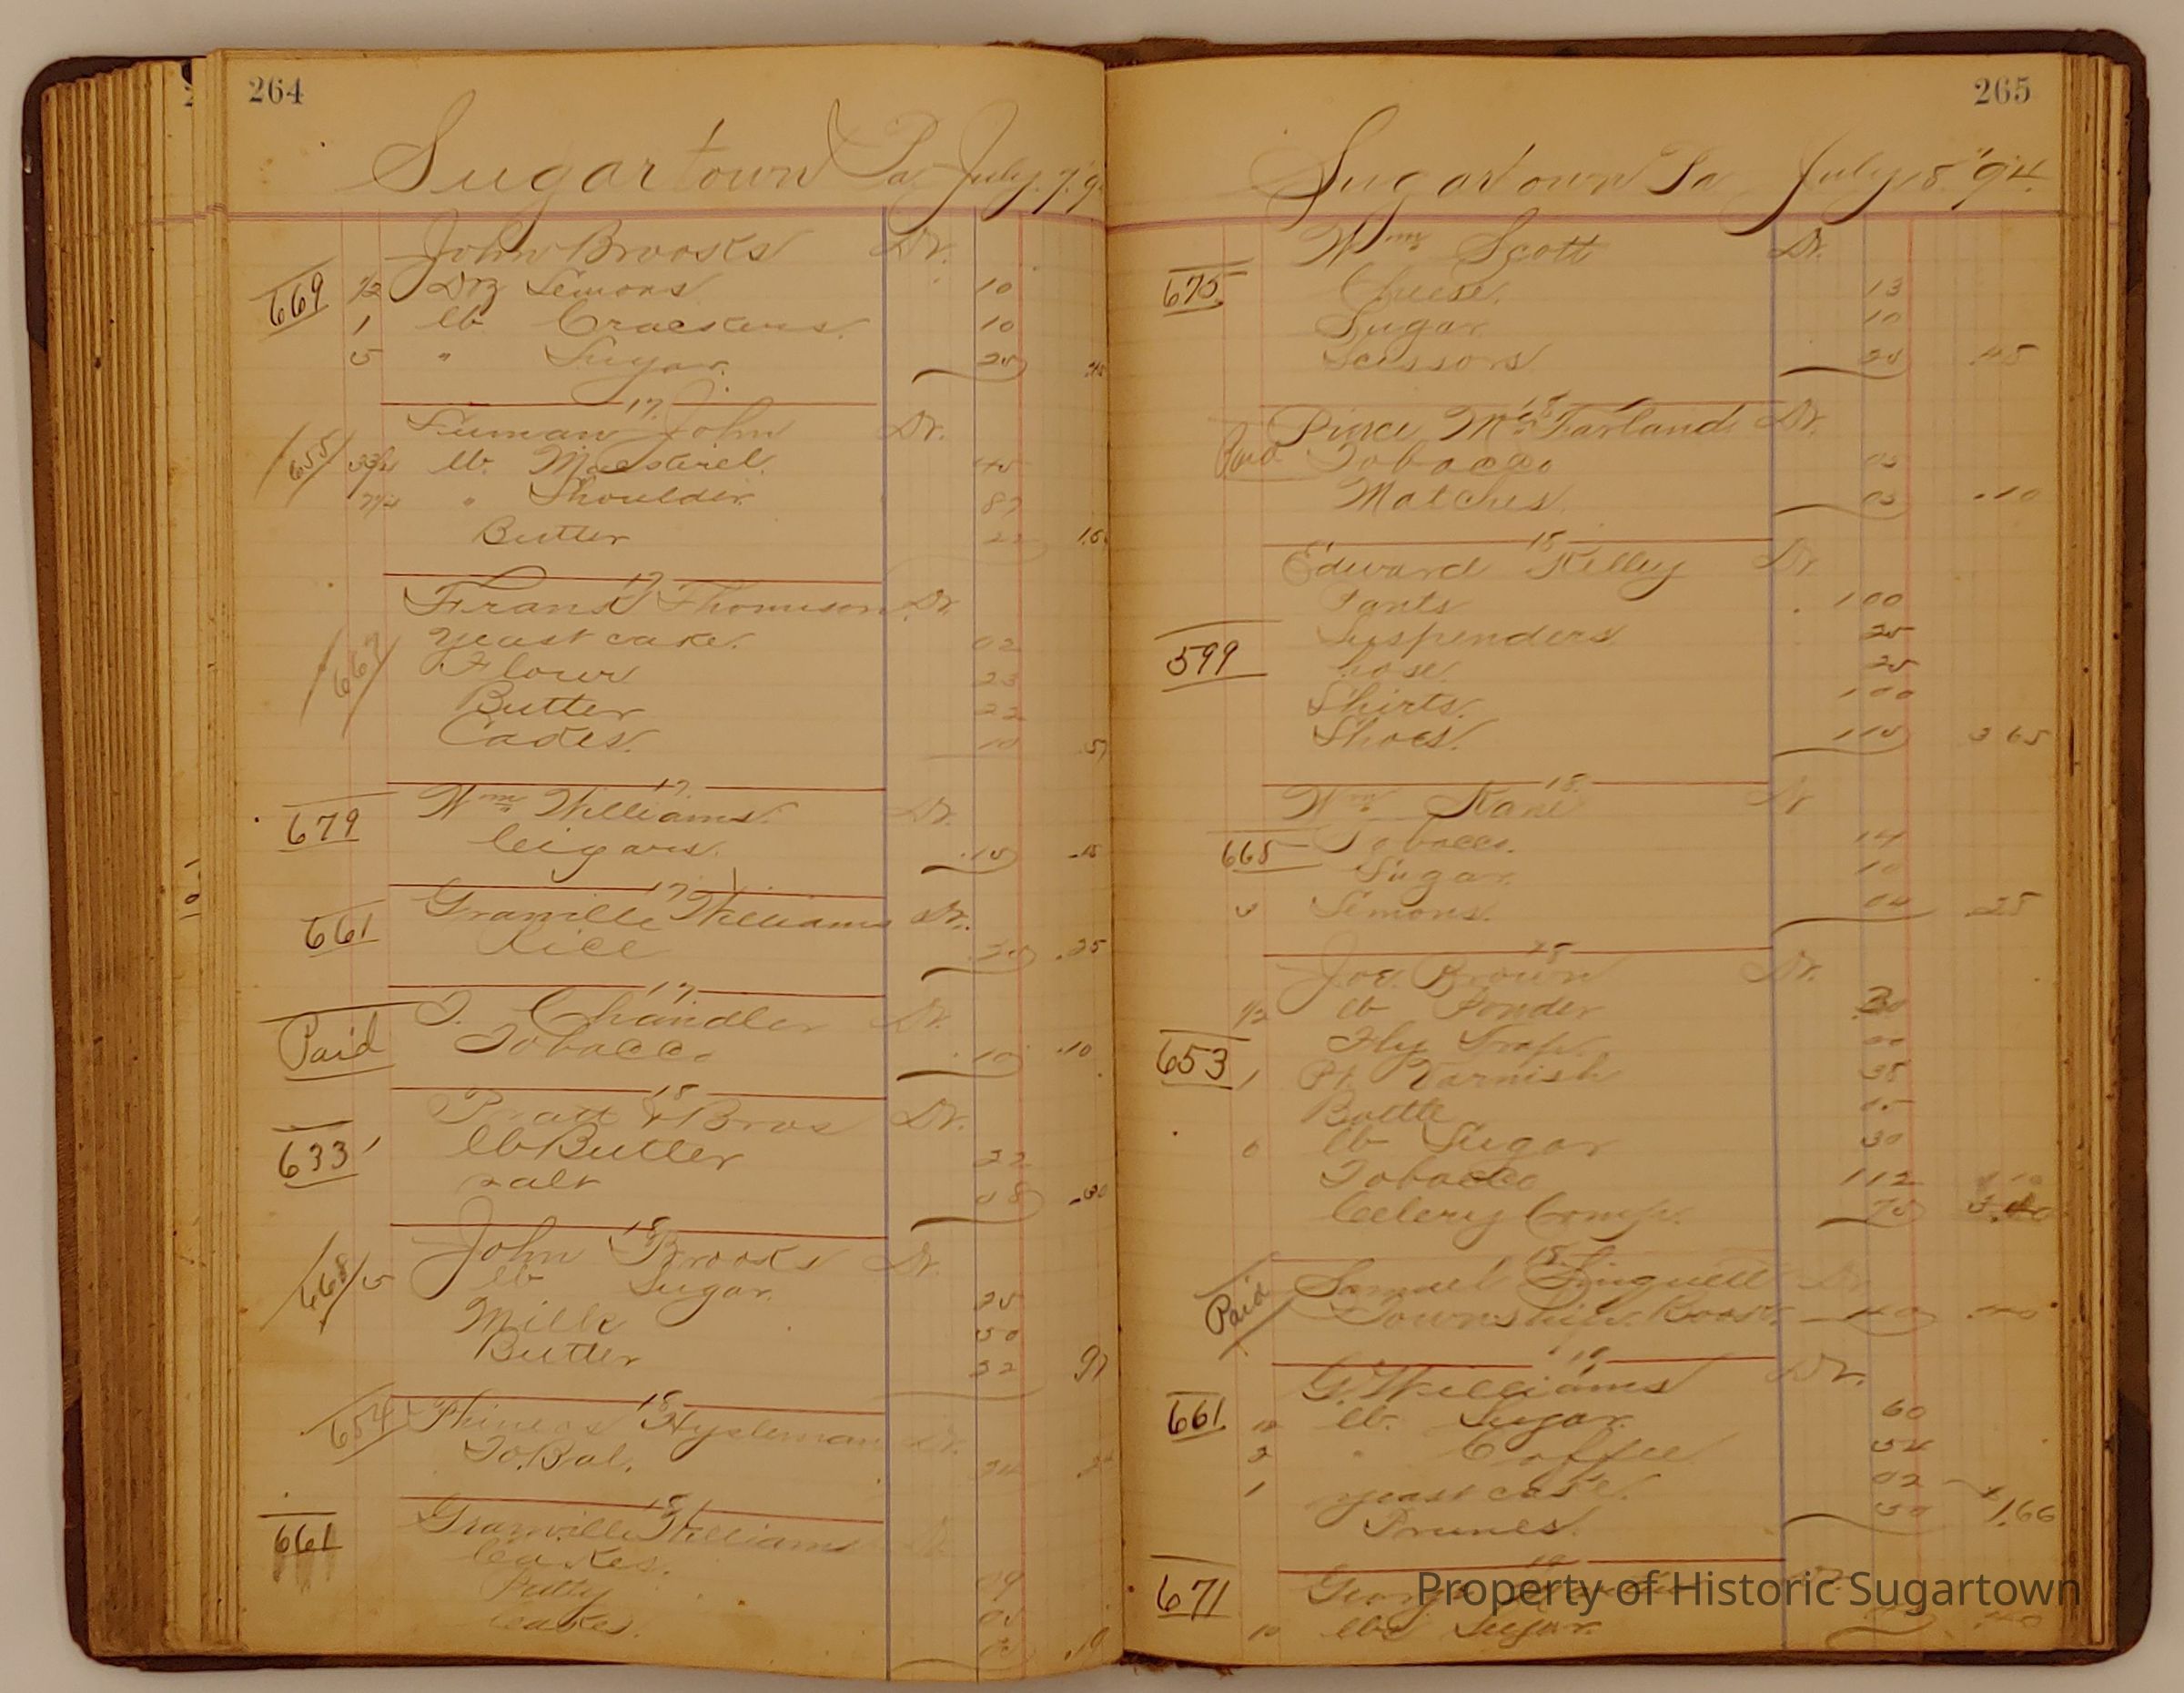 264
Sugartown Pa July 17, 9
John Brooks Dr.
669 1/2 Doz Lemons 10
1 lb Crackers. 10
5 " Sugar. 25 .45
17.
John Dr.
655 lb. Mackerel. 45
7 1/4 " Shoulder. 87
Butter 22 1.5
17
Frank Thomson Dr.
667 yeast cake. 02
Flour 23
Butter 22
Cakes. 10 .57
17.
679 Wm Williams. Dr.
Cigars. .15 .15
17
661 Granville Williams Dr.
Rice 25 .25
17.
Paid T. Chandler Dr.
Tobacco .10 .10
18
Pratt & Bros Dr.
633 1 lb Butter 22
Salt 08 .30
18
John Brooks Dr.
668 5 lb Sugar. 25
Milk 50
Butter 22 97
18
654 Phineas Dr.
To. Bal. 24
18
661 Granville Williams Dr.
Cakes. 09
Putty 05
Cakes. .19
265
Sugartown Pa July 18 '94.
Wm Scott Dr.
675 Cheese. 13
Sugar 10
Scissors 25 .48
18
Pince McFarland Dr.
Paid Tobacco 05
Matches. 05 .10
18
Edward Kelley Dr.
Pants 100
599 Suspenders 25
hose. 25
Shirts. 100
Shoes. 115 3 65
18.
Wm Kane Dr
665 Tobacco. 14
Sugar. 10
3 Lemons. 04 .28
18
Joe. Brown Dr.
1/2 lb Powder
653 Fly Trap.
1 Pt Varnish 38
Bottle
6 lb Sugar 30
Tobacco 112
Celery Comp. 75
18
Paid Samuel Dr
Township Book. 40 .40
19
G. Williams Dr.
661 12 lb. Sugar. 60
2 " Coffee 54
1 yeast cake. 02
Prunes. 50 1.66
19
671 George
10 lbs Sugar.
Property of Historic Sugartown